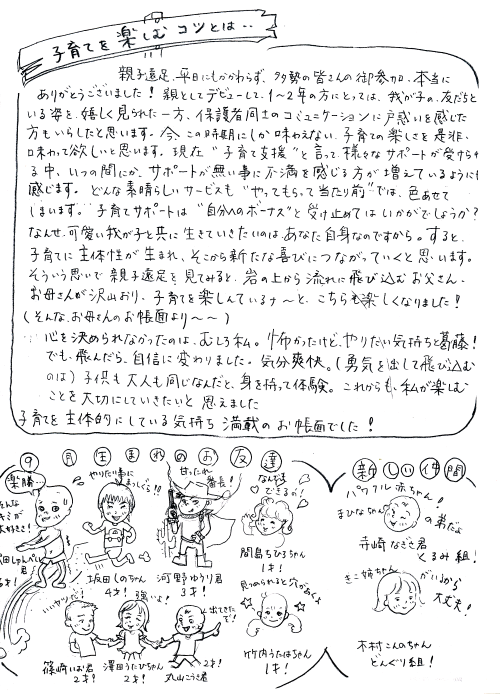 子育てを楽しむコツとは‥
親子遠足、平日にもかかわらず、多勢の皆さんの御参加、本当に
ありがとうございました！親としてデビューして、1～2年の方にとっては、我が子の、友だちと
いる姿を、嬉しく見られた一方、保護者同士のコミュニケーションに戸惑いを感じた
方もいらしたと思います。今、この時期にしか味わえない、子育ての楽しさを是非、
味わって欲しいと思います。現在“子育て支援”と言って、様々なサポートが受けられ
る中、いつの間にか、サポートが無い事に不満を感じる方が増えているようにも
感じます。どんな素晴らしいサービスも“やってもらって当たり前”では、色あせて
しまいます。子育てサポートは“自分へのボーナス”と受け止めてはいかがでしょうか？
なんせ、可愛い我が子と共に生きていきたいのはあなた自身なのですから。すると、
子育てに主体性が生まれ、そこから新たな喜びにつながっていくと思います。
そういう思いで親子遠足を見てみると、岩の上から流れに飛び込むお父さん、
お母さんが沢山おり、子育てを楽しんでいるナ～と、こちらも楽しくなりました！
（そんな、お母さんのお帳面より～～）
心を決められなかったのは、むしろ私。怖かったけど、やりたい気持ちと葛藤！
でも、飛んだら、自信に変わりました。気分爽快。（勇気を出して飛び込む
のは）子供も大人も同じなんだと、身を持って体験。これからも、私が楽しむ
ことを大切にしていきたいと思えました
子育てを主体的にしている気持ち満載のお帳面でした！
9月生まれのお友達
楽勝
そんな
大好きさ！
やりたい事に
まっしぐら!!
坂田しのちゃん
4才！
甘ったれ
番長！
河野ゆうり君
3才！
なんでも
できるの！
間島ちひろちゃん
1才！
見つめられると穴があくよ
竹内うたはちゃん
1才！
いいヤツだ！
篠崎いお君
2才！
強いよ！
澤田うたひちゃん
2才！
出てきた
で！
2才！
丸山こうき君
新しい仲間
パワフル赤ちゃん！
まひなちゃん
の弟だよ
寺崎なぎさ君
くるみ組！
きこ姉ちゃん
がいるから
大丈夫！
木村こんのちゃん
どんぐり組！